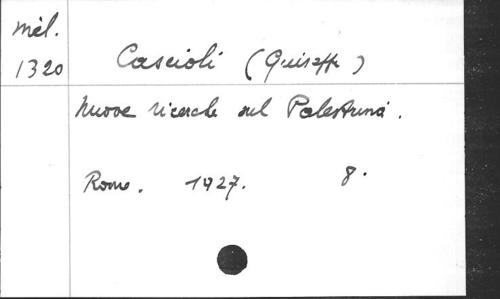 mél.
1320
Cascioli (Guiseppe)
Nuove ricerche sul Palestrina.
Roma. 1927. 8.